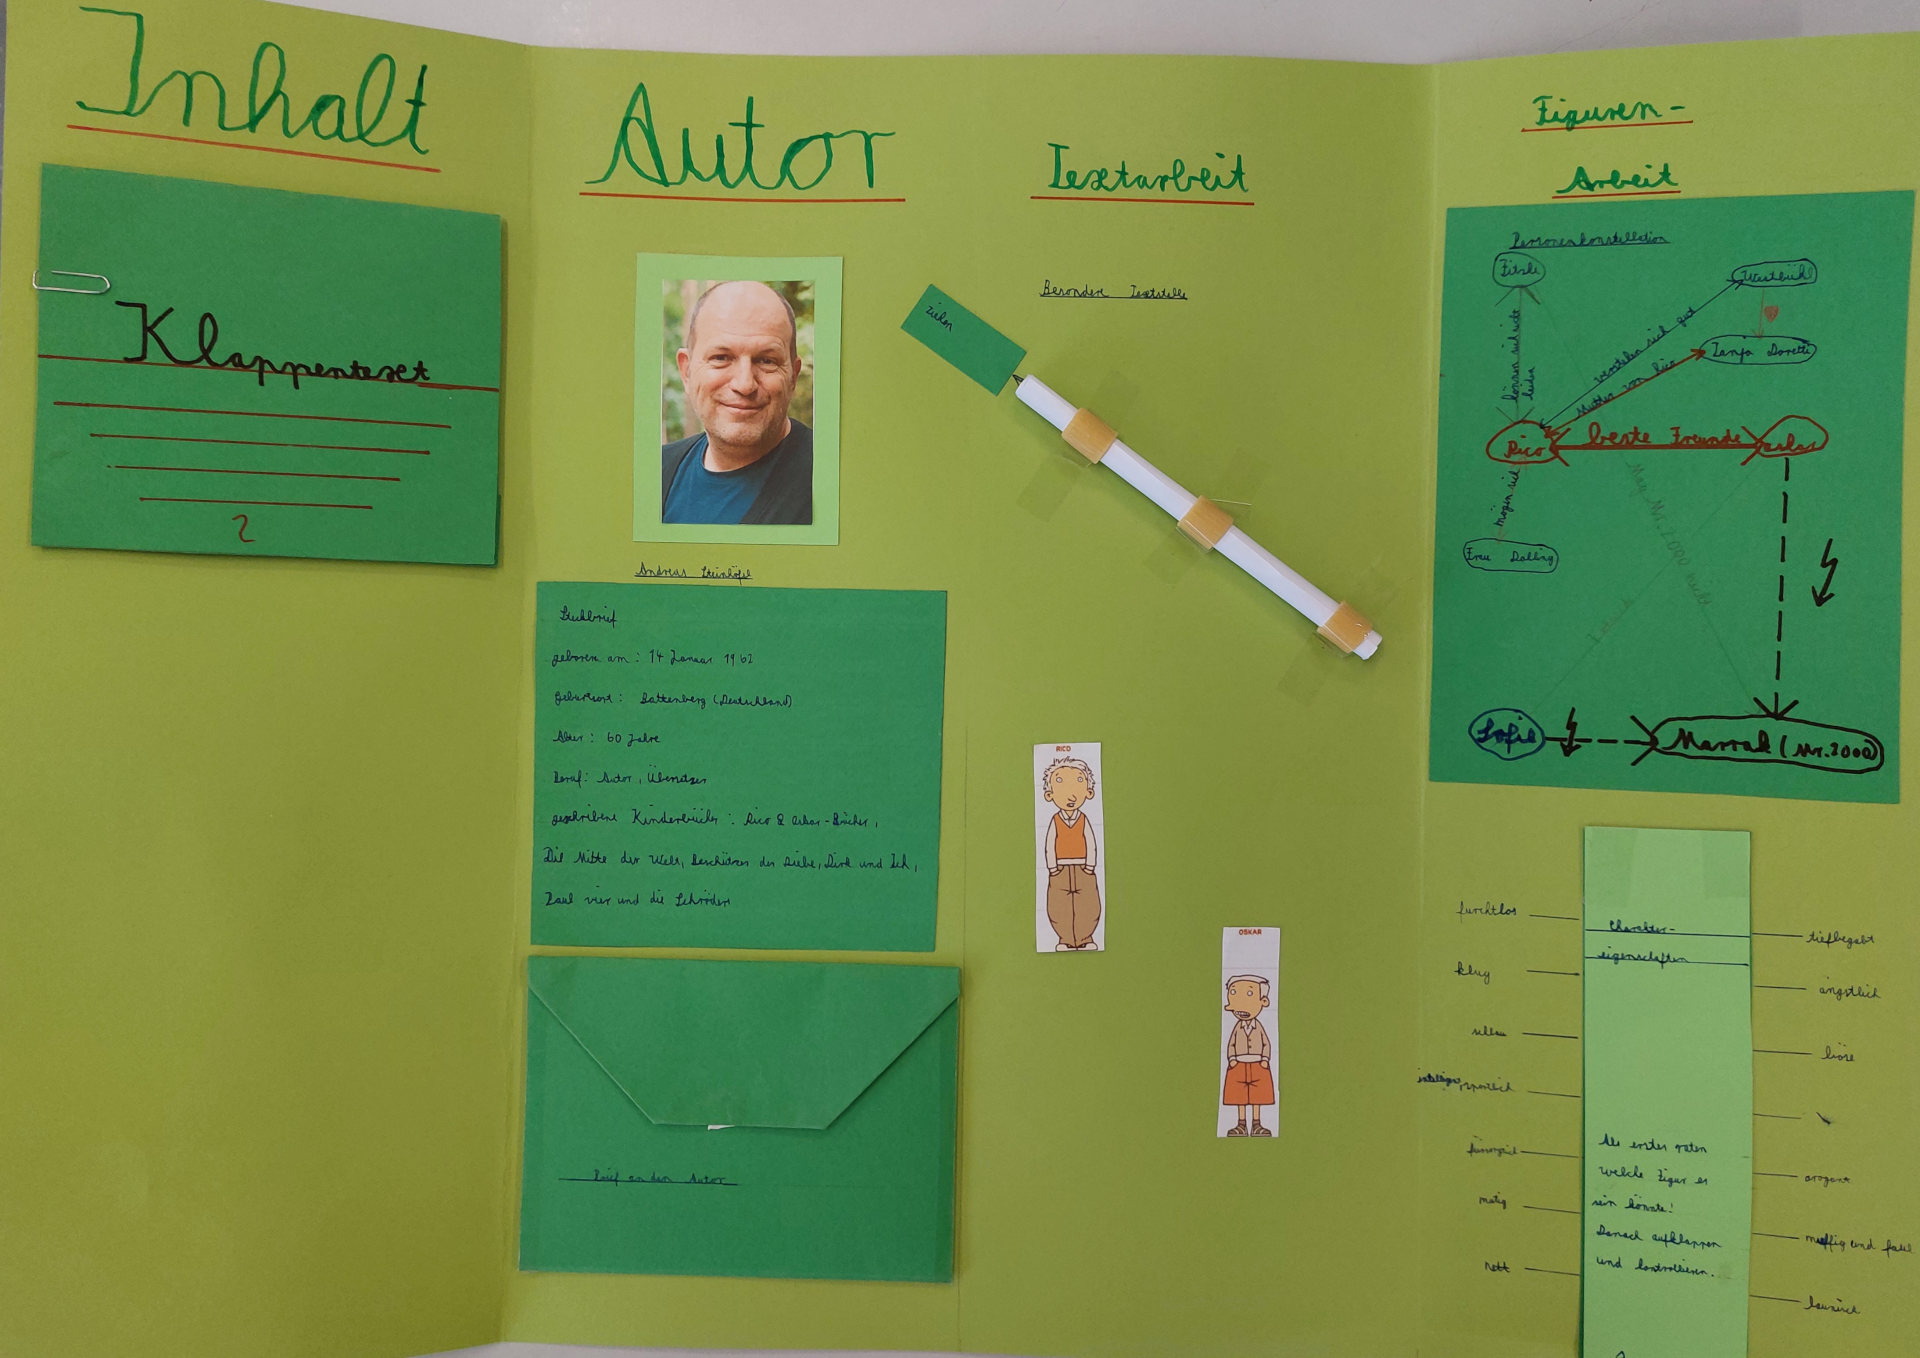 Inhalt
Klappentext
Autor
Andreas Steinhöfel
Steckbrief
geboren am: 14 Januar 1962
Geburtsort: Battenberg (Deutschland)
Alter: 60 Jahre
Beruf: Autor, Übersetzer
geschribene Kinderbücher: Rico & Oskar-Bücher,
Die Mitte der Welt, Beschützer der Diebe, Dirk und Ich,
Paul vier und die Schröders
Brief an den Autor
Textarbeit
Besondere Textstelle
ziehen
RICO
OSKAR
Figuren-
Arbeit
Personenkonstellation
Fitzke
Westbühl
können sich nicht
leiden
verstehen sich gut
Mutter von Rico
Tanja Doretti
Rico
beste Freunde
Oskar
mögen sich
Mag Mr. 2000 nicht
Frau Dalling
Sofie
Marrak (Mr. 2000)
Charakter-
eigenschaften
furchtlos
klug
schlau
sportlich
mutig
nett
tiefbegabt
ängstlich
böse
arogant
muffig und faul
launisch
Als erstes raten
welche Figur es
sein könnte!
Danach aufklappen
und kontrollieren.